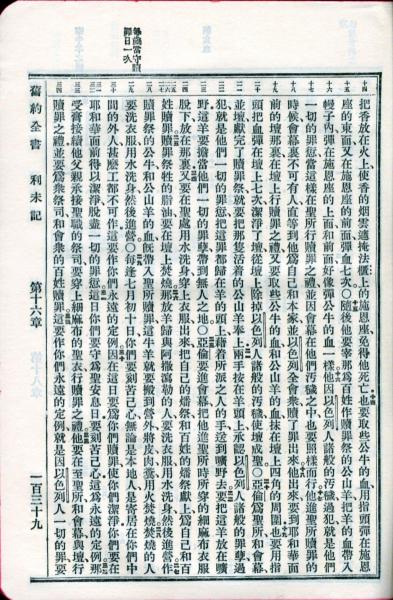 把香放在火上使香的烟雲遮掩法櫃上的施恩座免得他死亡也要取些公牛的血用指頭彈在施恩
座的東面又在施恩座的前面彈血七次○隨後他要宰那爲百姓作贖罪祭的公山羊把羊的血帶入
幔子內彈在施恩座的上面和前面好像彈公牛的血一樣他因以色列人諸般的汚穢過犯就是他們
一切的罪愆當這樣在聖所行贖罪之禮並因會幕在他們汚穢之中也要照樣而行他進聖所贖罪的
時候會幕裏不可有人直等到他爲自己和本家並以色列全會衆贖了罪出來他出來要到耶和華面
前的壇那裏在壇上行贖罪之禮又要取些公牛的血和公山羊的血抹在壇上四角的周圍也要用指
頭把血彈在壇上七次潔淨了壇從壇上除掉以色列人諸般的汚穢使壇成聖○亞倫爲聖所和會幕
並壇獻完了贖罪祭就要把那隻活着的公山羊奉上兩手按在羊頭上承認以色列人諸般的罪孽過
犯就是他們一切的罪愆把這罪都歸在羊的頭上藉着所派之人的手送到曠野去要把這羊放在曠
野這羊要擔當他們一切的罪孽帶到無人之地○亞倫要進會幕把他進聖所時所穿的細麻布衣服
脫下放在那裏又要在聖處用水洗身穿上衣服出來把自己的燔祭和百姓的燔祭獻上爲自己和百
姓贖罪贖罪祭牲的脂油要在壇上焚燒那放羊歸與阿撒瀉勒的人要洗衣服用水洗身然後進營作
贖罪祭的公牛和公山羊的血既帶入聖所贖罪這牛羊就要搬到營外將皮肉糞用火焚燒焚燒的人
要洗衣服用水洗身然後進營○每逢七月初十日你們要刻苦己心無論是本地人是寄居在你們中
間的外人甚麽工都不可作這要作你們永遠的定例因在這日要爲你們贖罪使你們潔淨你們要在
耶和華面前得以潔淨脫盡一切的罪愆這日你們要守爲聖安息日要刻苦己心這爲永遠的定例那
受膏接續他父親承接聖職的祭司要穿上細麻布的聖衣行贖罪之禮他要在至聖所和會幕與壇行
贖罪之禮並要爲衆祭司和會衆的百姓贖罪這要作你們永遠的定例就是因以色列人一切的罪要
每歲當守贖
罪日一次
舊約全書 利未記 第十六章 一百三十九